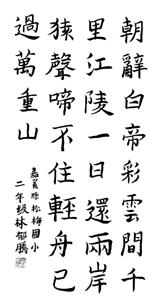 朝辭白帝彩雲間千
里江陵一日還兩岸
猿聲啼不住輕舟已
過萬重山
嘉義縣松梅國小
二年級林郁騰